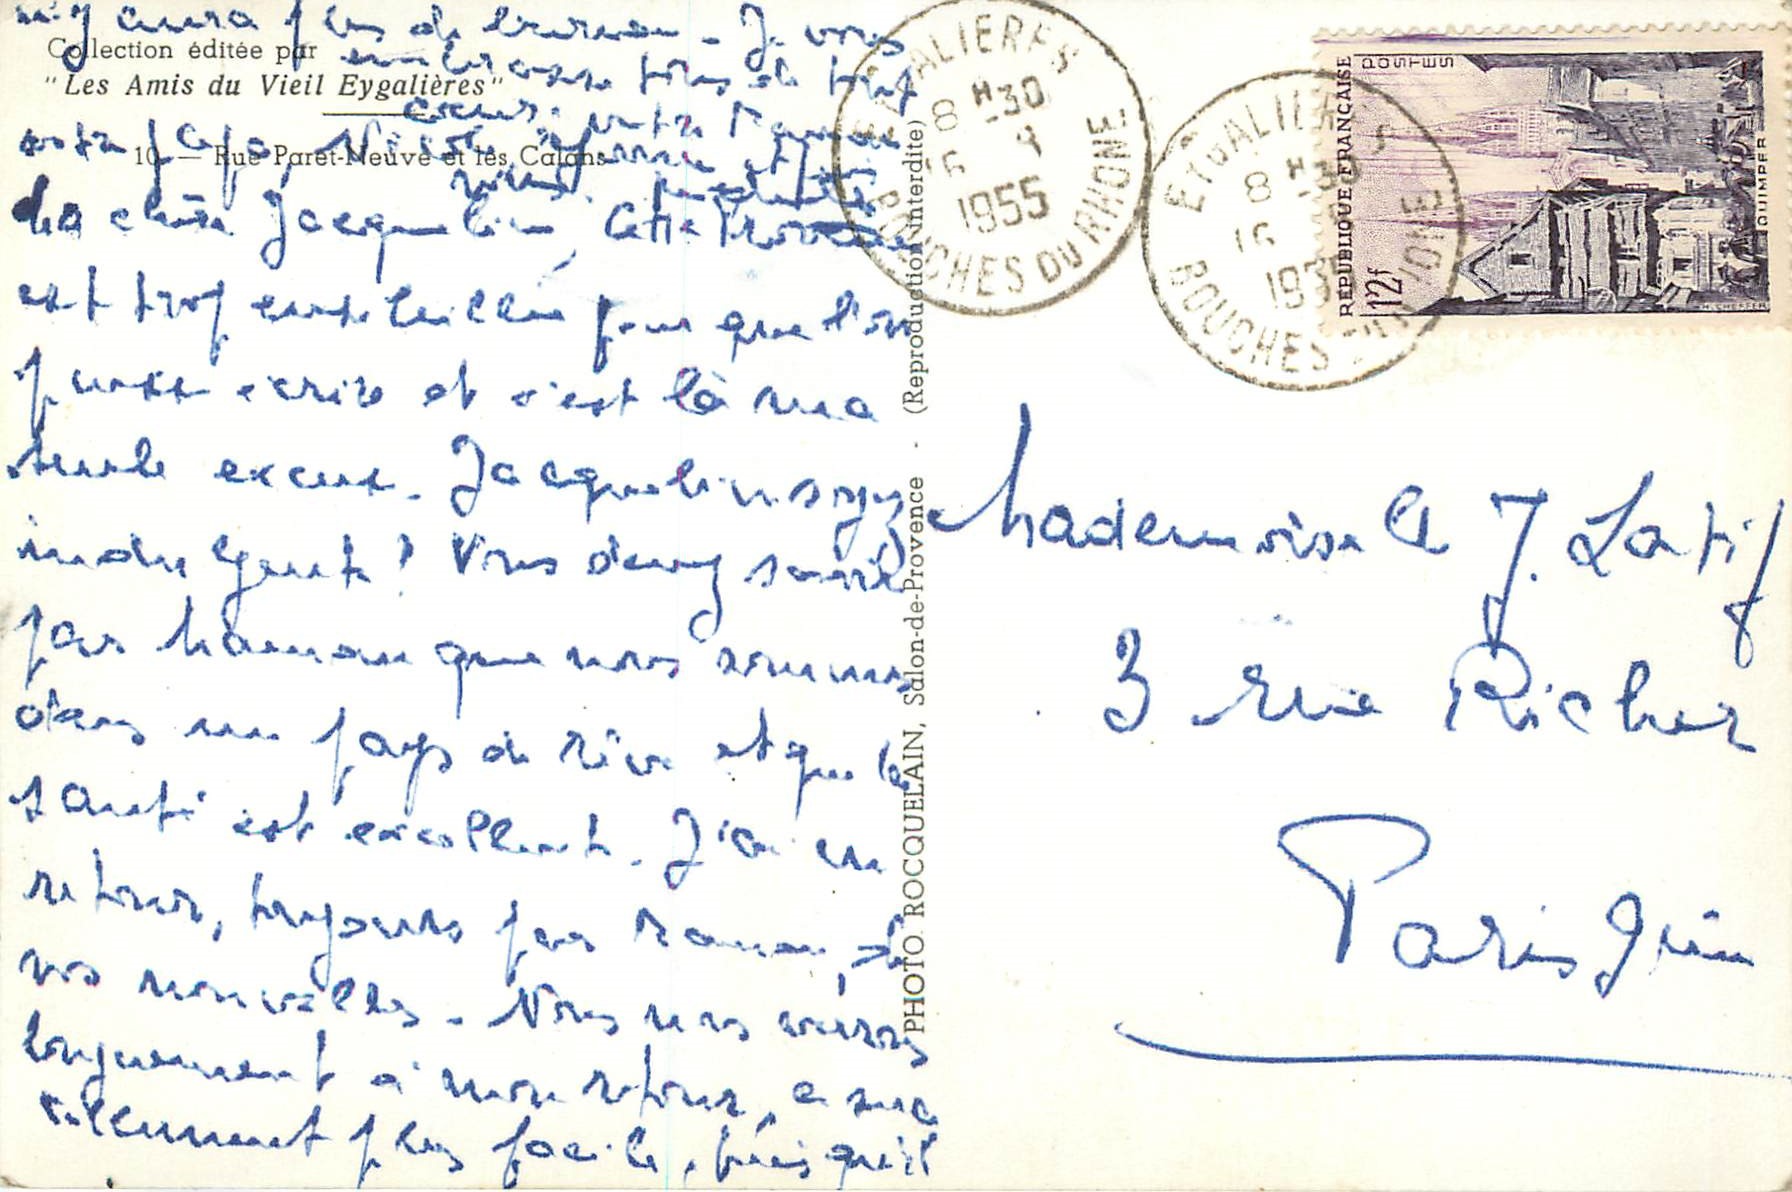 Collection éditée par
"Les Amis du Vieil Eygalières"
10 — Rue Paret-Neuve et les Calans
Ma chère Jacqueline, Cette Provence
est trop ensoleillée pour que l'on
puisse écrire et c'est là ma
seule excuse. Jacqueline soyez
indulgente! Vous devez savoir
par Maman que nous sommes
dans un pays de rêve et que la
santé est excellente. J'ai eu
retour, toujours par Maman, de
vos nouvelles. Nous nous verrons
longuement à mon retour, ce sera
tellement plus facile, puisqu'il
n'y aura plus de bureau. Je vous
embrasse tous de tout
cœur: votre Maman
votre papa, Nicole
vous
EYGALIERES
8 H 30
16 4
1955
BOUCHES DU RHONE
EYGALIERES
8 H 30
16
1955
BOUCHES DU RHONE
REPUBLIQUE FRANÇAISE
POSTES
12f
QUIMPER
PHOTO. ROCQUELAIN, Salon-de-Provence - (Reproduction interdite)
Mademoiselle J. Latif
3 rue Richer
Paris 9ième